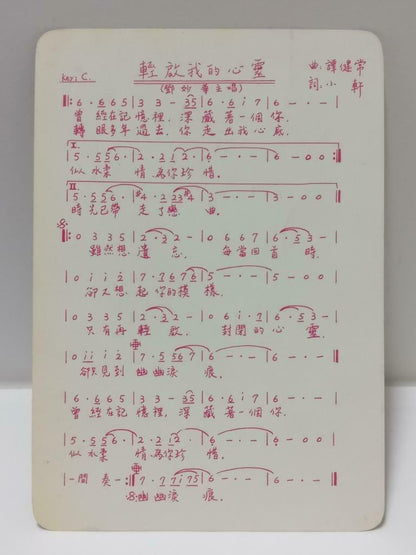 Key: C. 輕啟我的心靈 曲:譚健常
(鄧妙華主唱) 詞:小軒
‖: 6 · 6 6 5 | 3 3 - 3 5 | 6 · 6 i 7 | 6 - · - |
曾 經在記 憶裡, 深 藏 著一個 你.
轉 眼多年 過去, 你 走 出我心 底.
I.
5 · 5 5 6 · | 2 · 2 1 2 · | 6 - · - | 6 - 0 0 :‖
似 水柔 情 為你珍 惜.
II.
5 · 5 5 6 · | #4 · 2 2 3 #4 | 3 - · - | 3 - 0 0 ‖
時光已帶 走了戀 曲.
‖: 0 3 3 5 | 2 · 3 2 - | 0 6 6 7 | 6 · 5 3 - |
雖然想 遺 忘. 每當回 首 時.
| 0 i i 2 | 7 · i 7 6 | 5 - · - | 5 - 0 0 |
卻又想 起你的模 樣.
| 0 3 3 5 | 2 · 3 2 - | 0 6 i 7 | 6 · 5 3 - |
只有再 輕 啟. 封閉的 心 靈.
| 0 i i i 2 | 7 · 5 5 6 7 | 6 - · - | 6 - · - ‖
卻見到 幽幽淚 痕.
| 6 · 6 6 5 | 3 3 - 3 5 | 6 · 6 i 7 | 6 - · - |
曾 經在記 憶裡, 深 藏 著一個 你.
| 5 · 5 5 6 · | 2 · 2 1 2 · | 6 - · - | 6 - 0 0 |
似 水柔 情 為你珍 惜.
| - 間 奏 - :‖ 7 · 7 7 i 7 5 | 6 - · - | 6 - · - ‖
幽幽淚 痕.